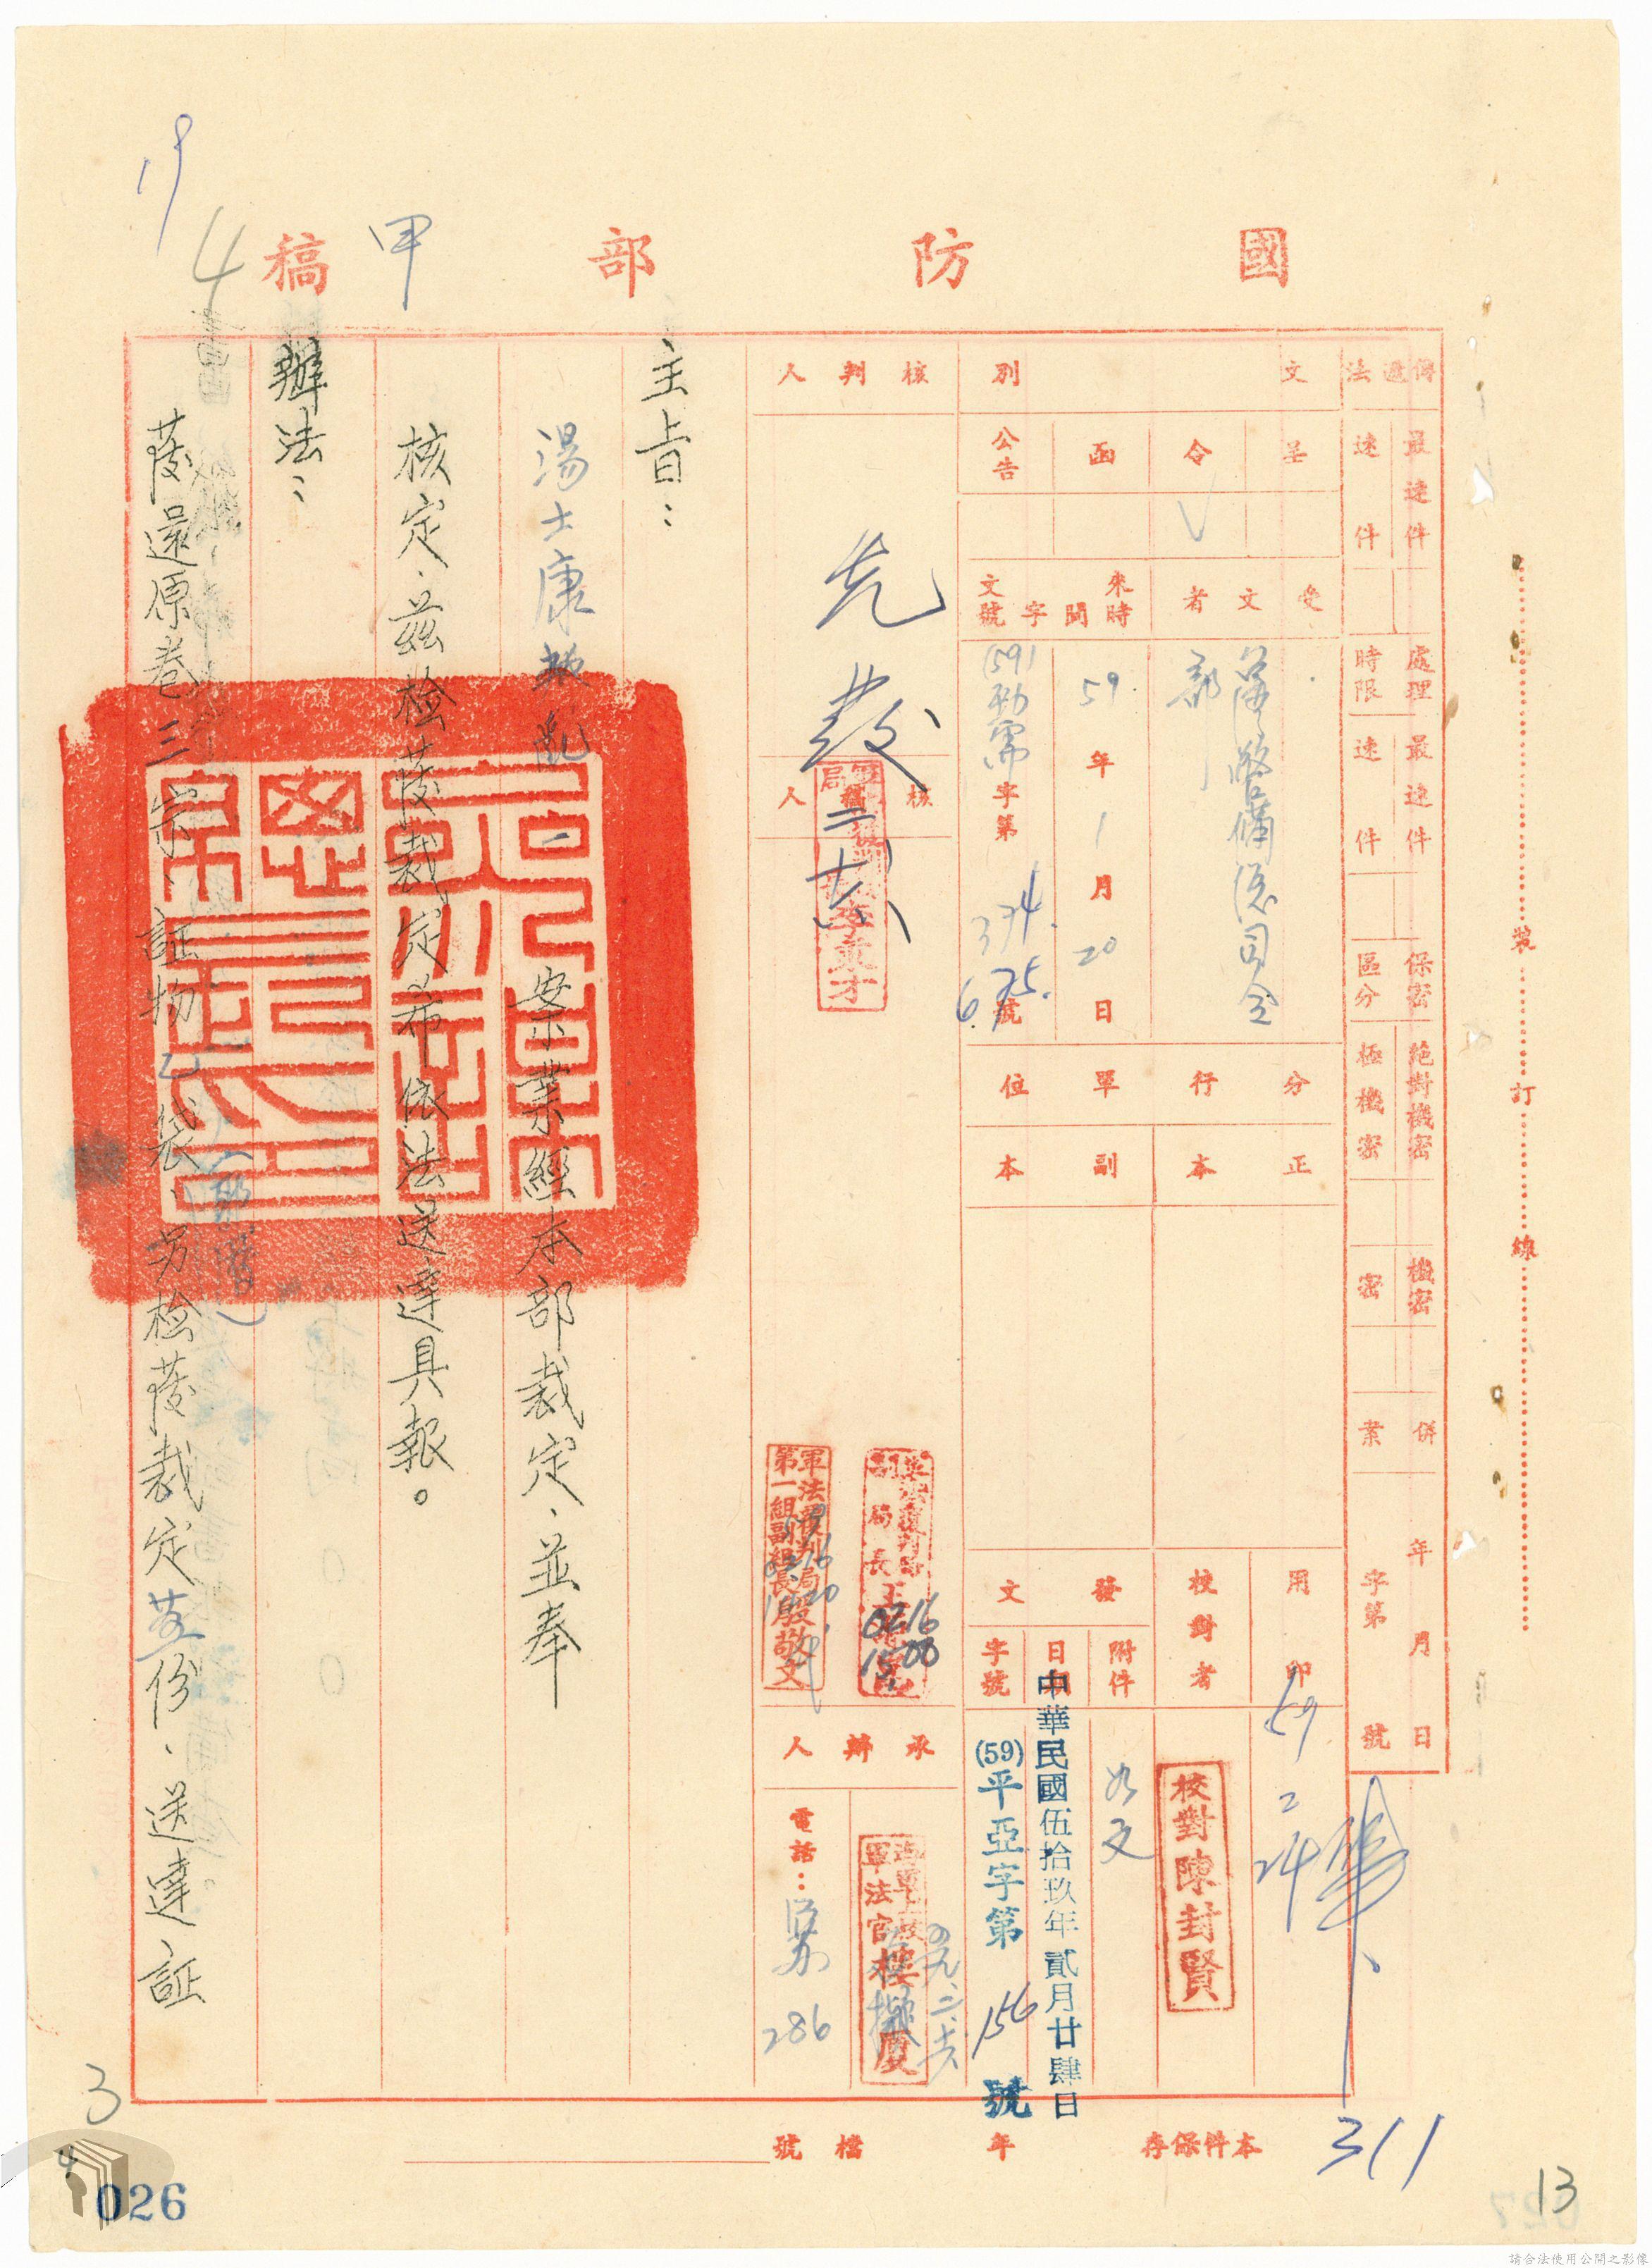 國防部稿
甲
19
4
傳遞法
最速件
速件
處理時限
最速件
速件
保密區分
絕對機密
極機密
機密
密
併案
年月日
字第號
文別
呈
令
函
公告
受文者
臺灣警備總司令部
來文時間字號
59年1月20日
(59)勁需字第374.675.號
分行單位
正本
副本
用印
59 2 24
校對者
校對陳封賢
發文
附件
如文
日期
中華民國伍拾玖年貳月廿肆日
字號
(59)平亞字第156號
核判人
先發
核人
軍法覆判局
李東才
副局長
0216
1500
軍法覆判局
第一組副組長殷敬文
承辦人
軍法官
電話:
286
主旨:
湯士康叛亂一案業經本部裁定、並奉
核定、茲檢發裁定希依法送達具報。
辦法:
發還原卷三宗、証物乙袋、另檢發裁定叁份、送達証
本件保存年
檔號
裝
訂
線
311
13
3
4
026
請合法使用公開之影像